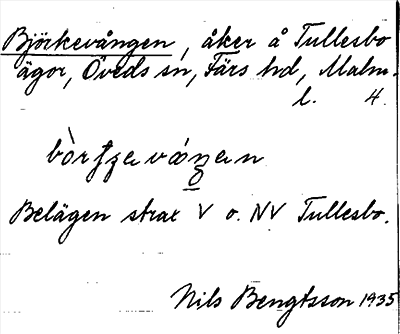 Björkevången, åker å Tullesbo
ägor, Öveds sn, Färs hd, Malm.
l. 4.
Belägen strax V o. NV Tullesbo.
Nils Bengtsson 1935